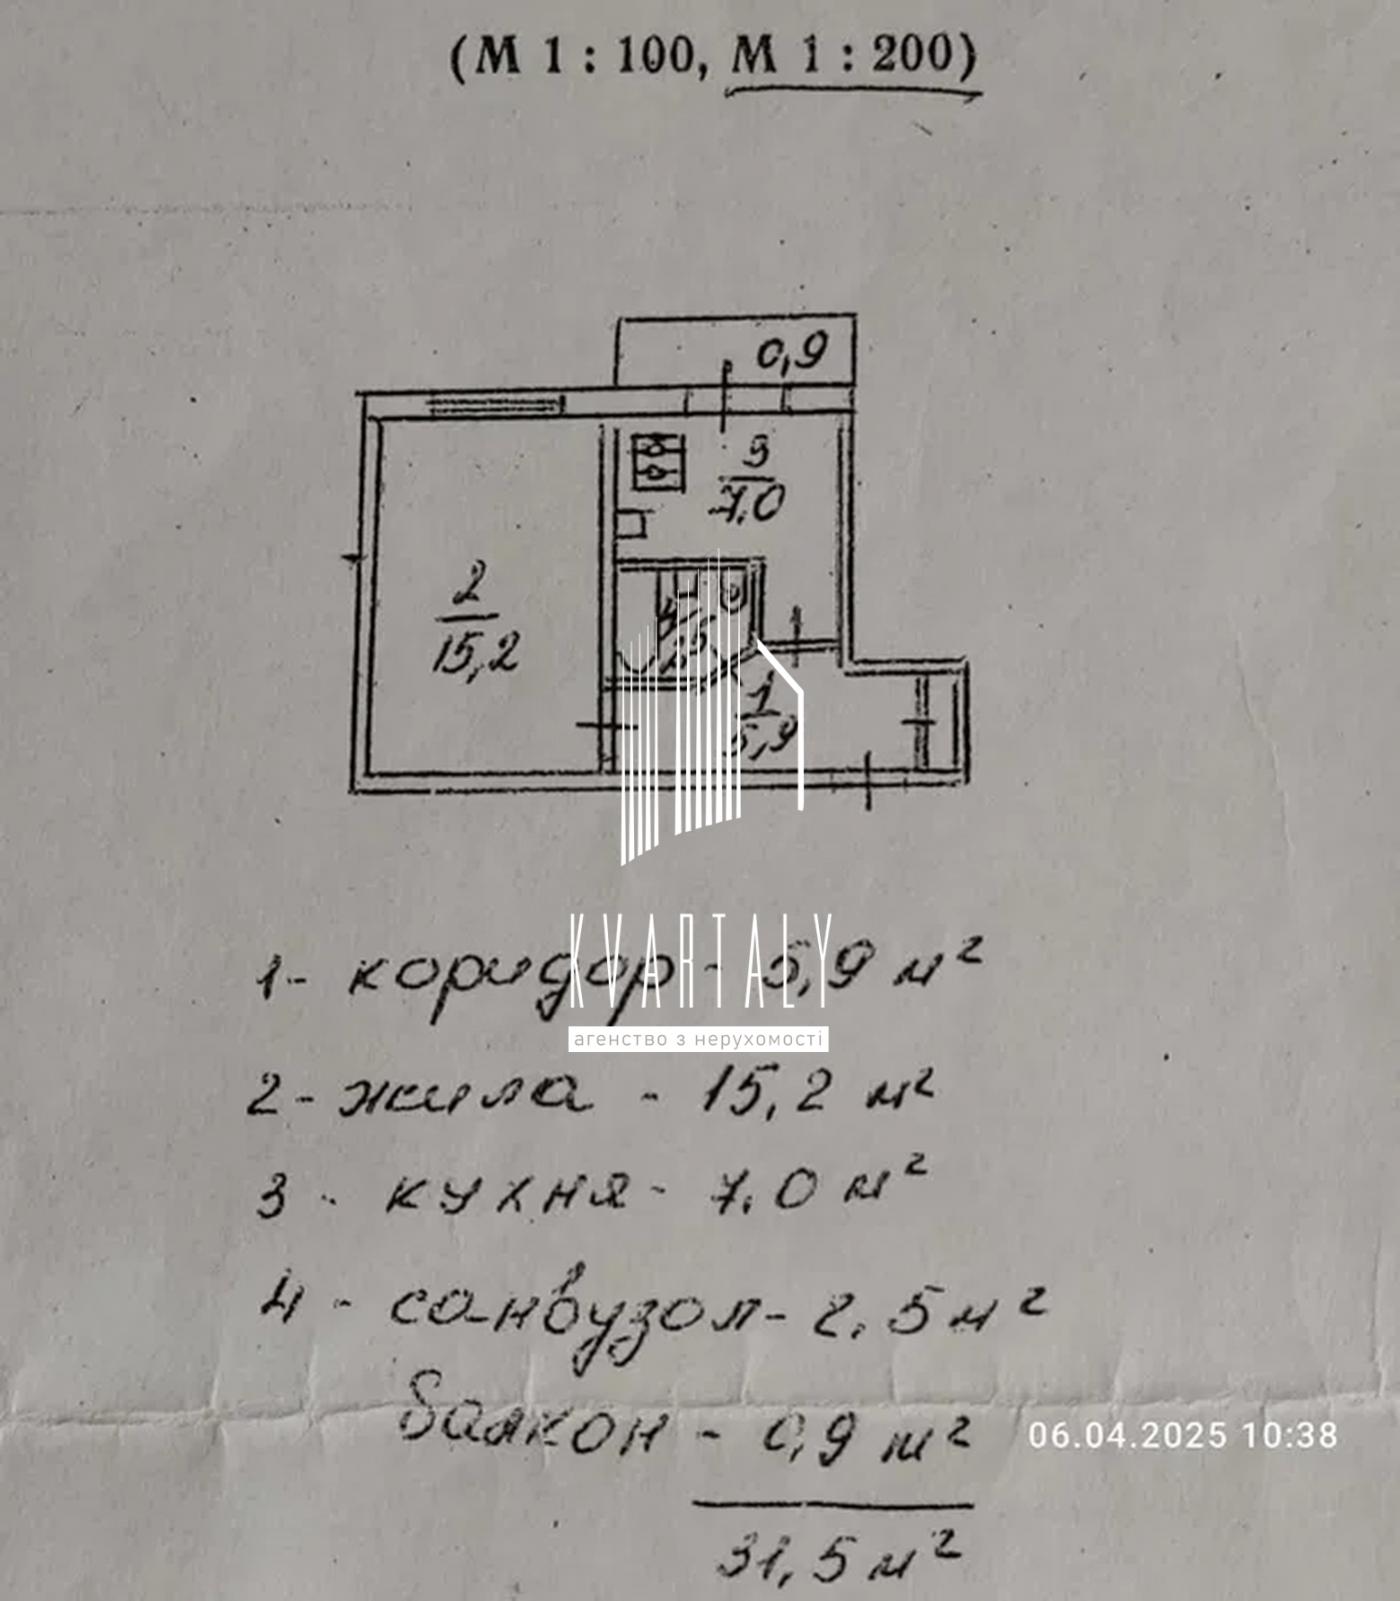 (М 1 : 100, М 1 : 200)
0,9
3
7.0
2
15,2
4
2,5
1
5,9
KVARTALY
агенство з нерухомості
1- коридор - 5,9 м²
2- жила - 15,2 м²
3 - кухня - 7.0 м²
4 - санвузол - 2,5 м²
балкон - 0,9 м²
06.04.2025 10:38
31,5 м²